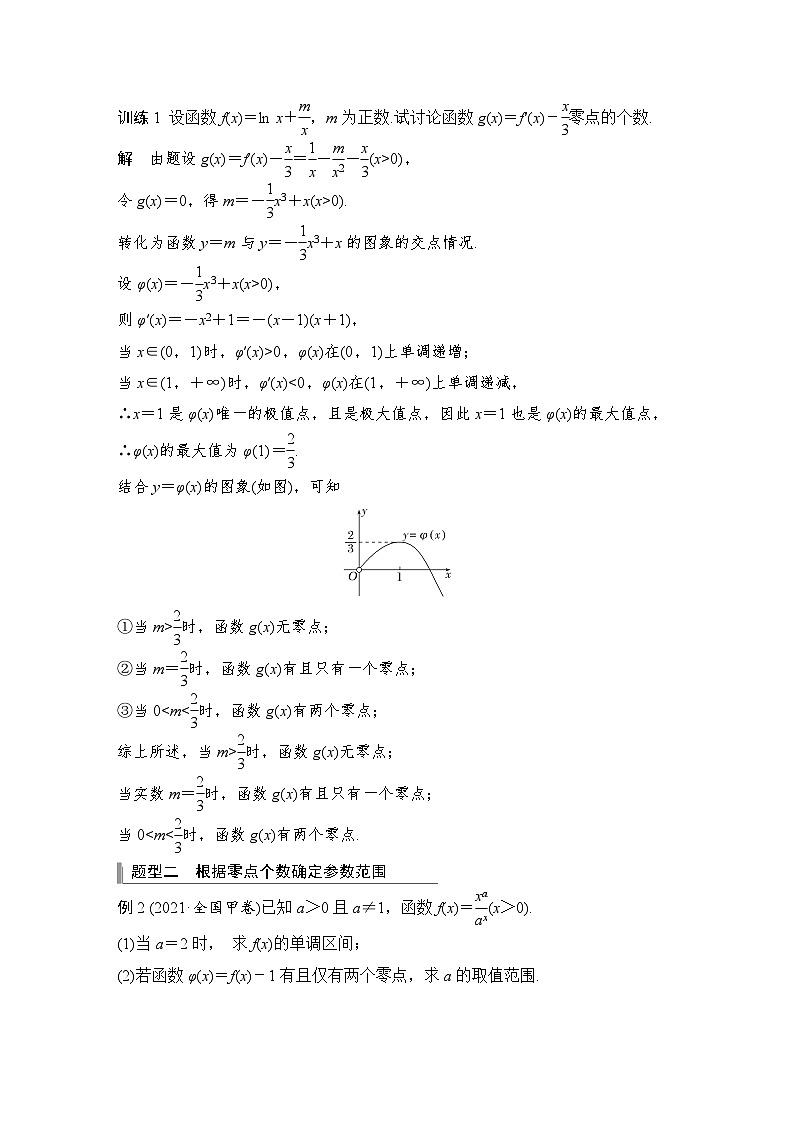 训练1 设函数f(x)=ln x+m/x，m为正数.试讨论函数g(x)=f′(x)-x/3零点的个数.
解 由题设g(x)=f′(x)-x/3=1/x-m/x2-x/3(x>0)，
令g(x)=0，得m=-1/3x3+x(x>0).
转化为函数y=m与y=-1/3x3+x的图象的交点情况.
设φ(x)=-1/3x3+x(x>0)，
则φ′(x)=-x2+1=-(x-1)(x+1)，
当x∈(0，1)时，φ′(x)>0，φ(x)在(0，1)上单调递增；
当x∈(1，+∞)时，φ′(x)<0，φ(x)在(1，+∞)上单调递减，
∴x=1是φ(x)唯一的极值点，且是极大值点，因此x=1也是φ(x)的最大值点，
∴φ(x)的最大值为φ(1)=2/3.
结合y=φ(x)的图象(如图)，可知
y
2/3 y=φ(x)
O 1 x
①当m>2/3时，函数g(x)无零点；
②当m=2/3时，函数g(x)有且只有一个零点；
③当0<m<2/3时，函数g(x)有两个零点；
综上所述，当m>2/3时，函数g(x)无零点；
当实数m=2/3时，函数g(x)有且只有一个零点；
当0<m<2/3时，函数g(x)有两个零点.
题型二 根据零点个数确定参数范围
例2 (2021·全国甲卷)已知a＞0且a≠1，函数f(x)=xa/ax(x＞0).
(1)当a=2时， 求f(x)的单调区间；
(2)若函数φ(x)=f(x)-1有且仅有两个零点，求a的取值范围.